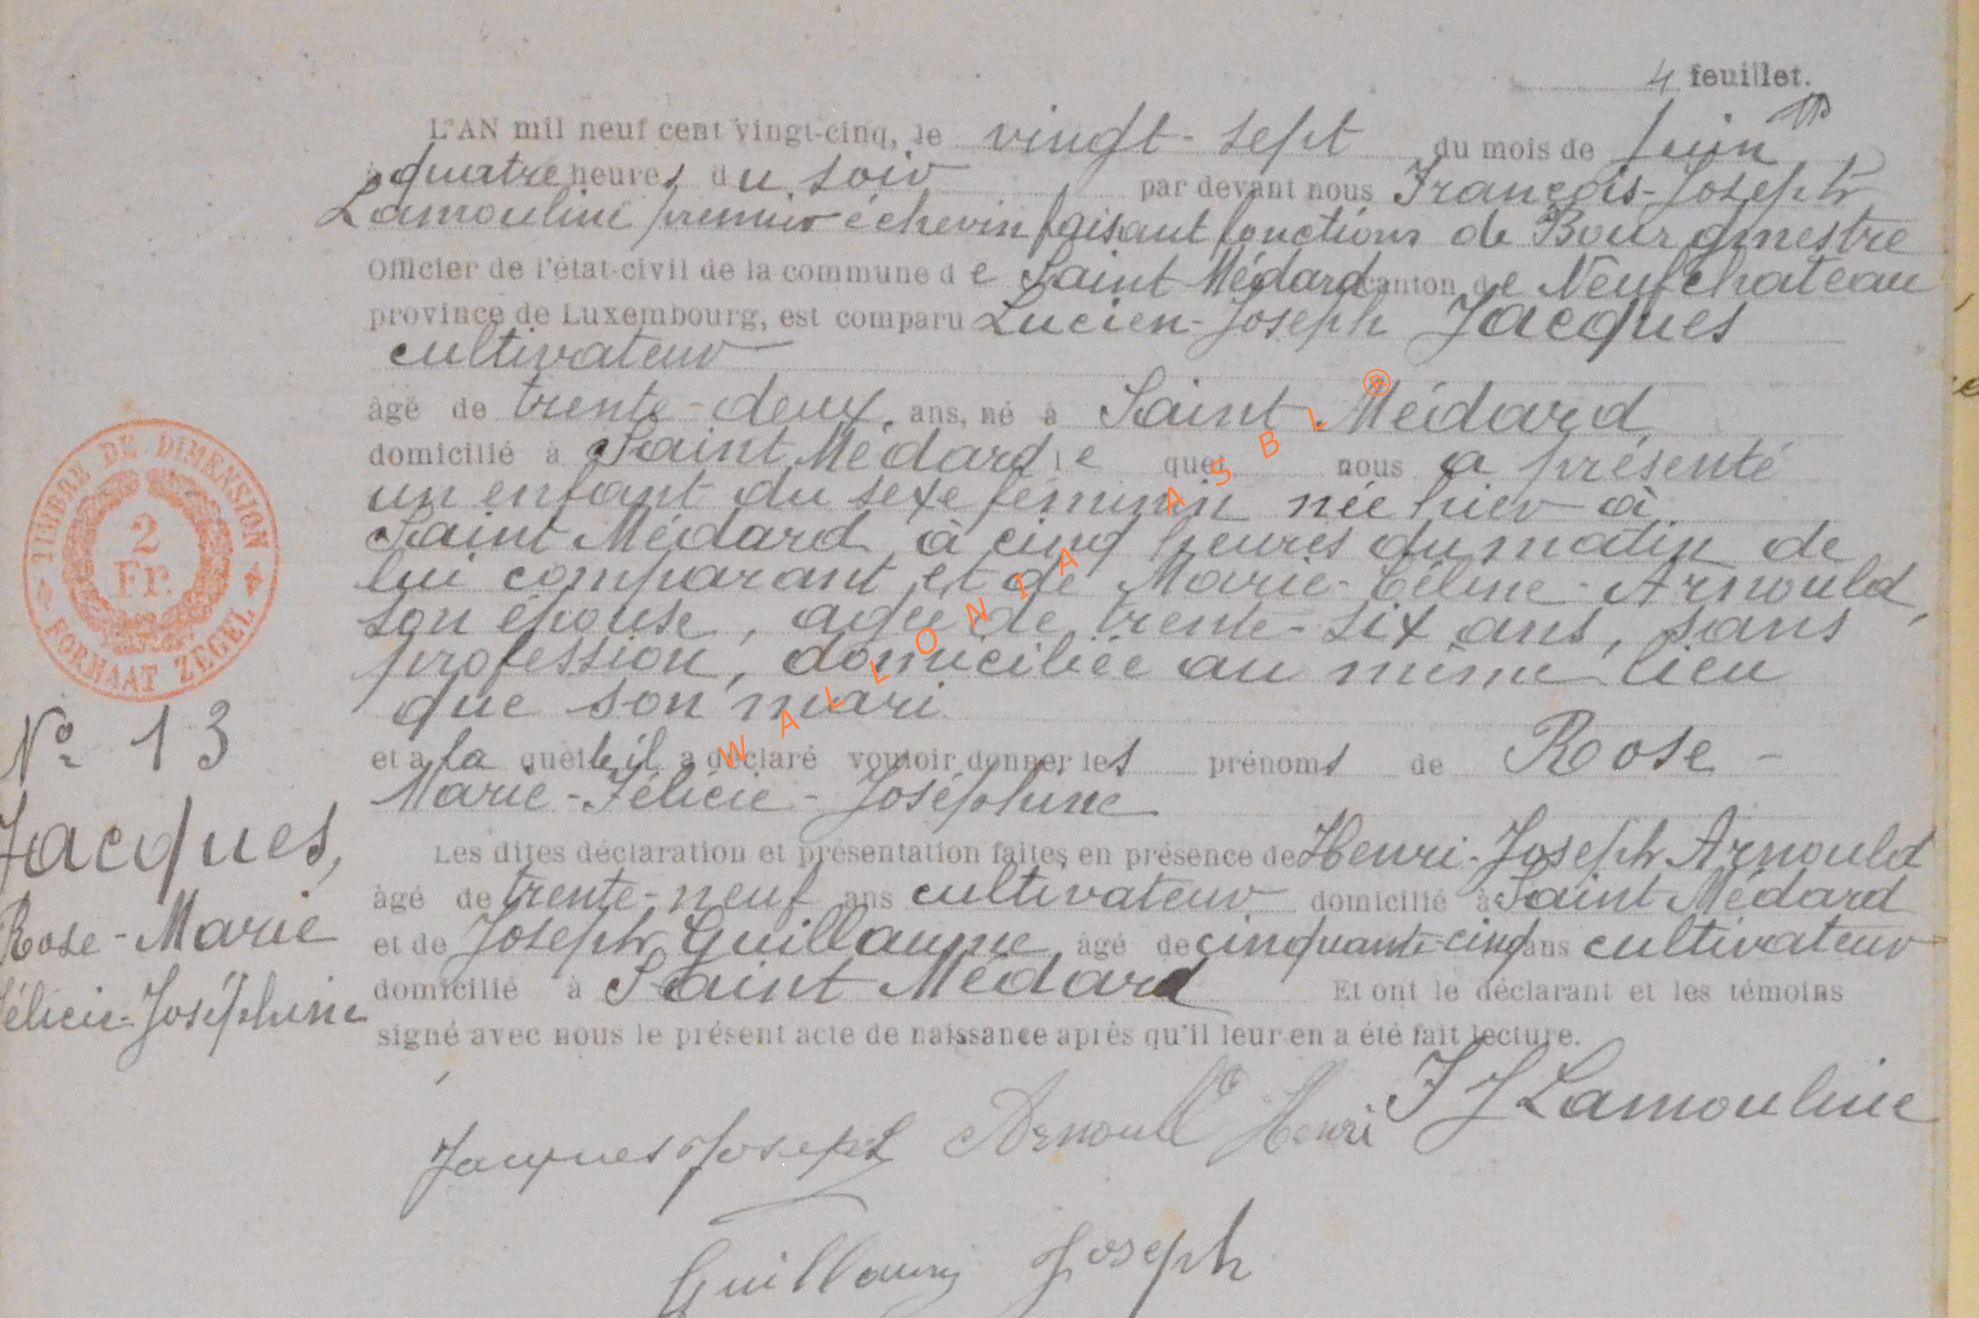 4 feuillet.
L'AN mil neuf cent vingt-cinq, le vingt-sept du mois de Juin
à quatre heures du soir par devant nous François-Joseph
Lamouline premier échevin faisant fonctions de Bourgmestre
Officier de l'état-civil de la commune de Saint Médard canton de Neufchateau
province de Luxembourg, est comparu Lucien-Joseph Jacques
cultivateur
âgé de trente-deux ans, né à Saint Médard
domicilié à Saint Médard le quel nous a présenté
un enfant du sexe féminin née hier à
Saint Médard à cinq heures du matin de
lui comparant et de Marie-Céline-Arnould,
son épouse, agée de trente-six ans, sans
profession, domiciliée au même lieu
que son mari
et a la quelle il a déclaré vouloir donner les prénoms de Rose-
Marie-Félicie-Joséphine
Les dites déclaration et présentation faites en présence de Henri-Joseph Arnould
âgé de trente-neuf ans cultivateur domicilié à Saint Médard
et de Joseph Guillaume âgé de cinquante-cinq ans cultivateur
domicilié à Saint Médard Et ont le déclarant et les témoins
signé avec nous le présent acte de naissance après qu'il leur en a été fait lecture.
Jacques Joseph Arnould Henri F J Lamouline
Guillaume Joseph
TIMBRE DE DIMENSION
2
Fr.
FORMAAT ZEGEL
N° 13
Jacques,
Rose-Marie
Félicie-Joséphine
WALLONIA ASBL ®